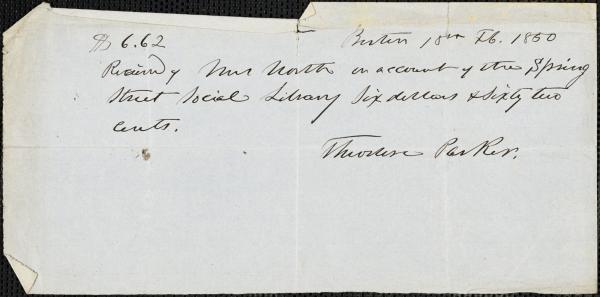 $6.62 Boston 18th Feb. 1850
Received of Mrs North on account of the Spring
Street Social Library Six dollars & Sixty two
cents.
Theodore Parker.